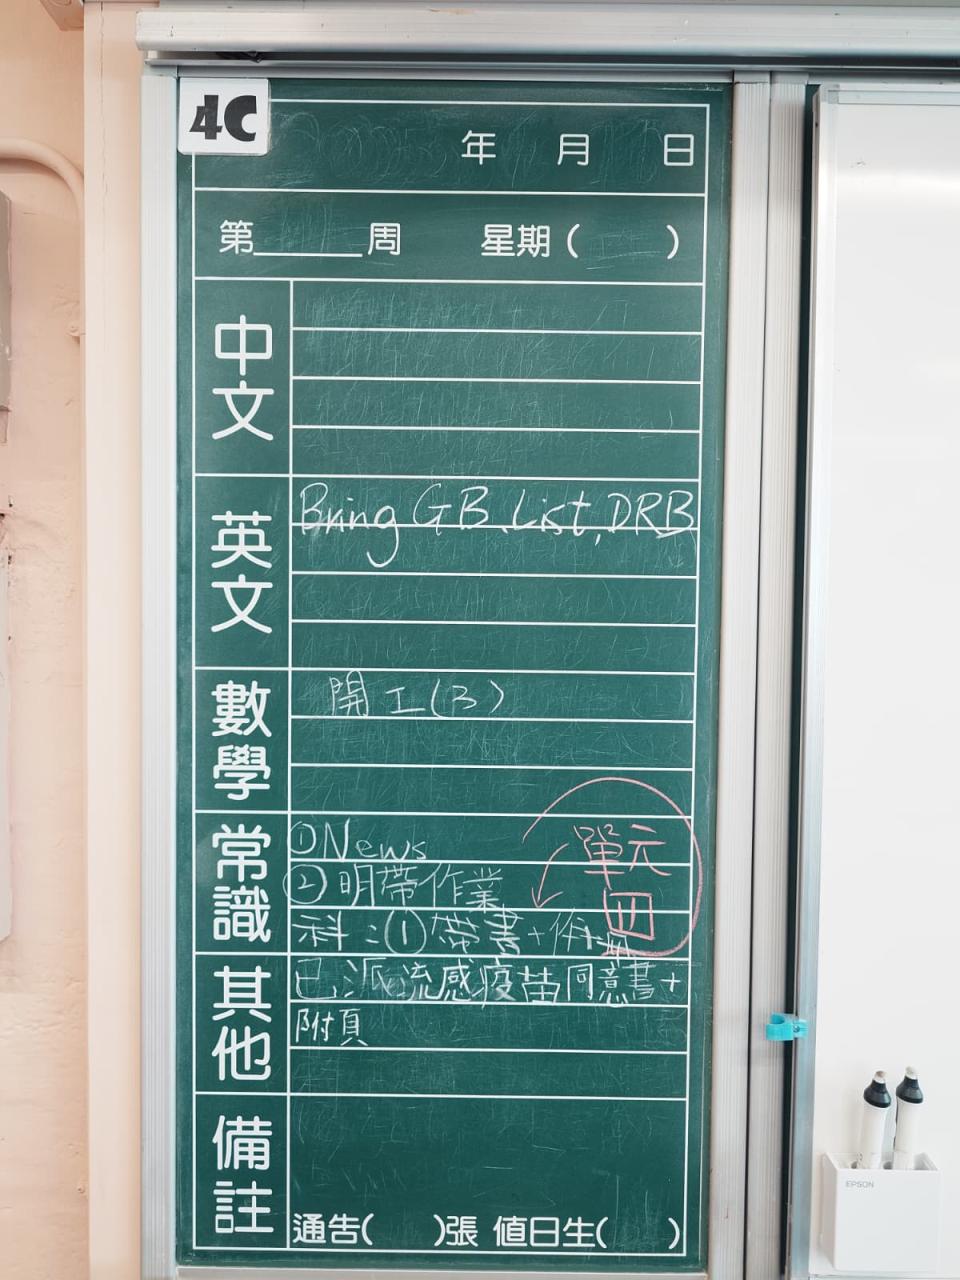 4C
年 月 日
第 周 星期( )
中文
英文
Bring GB, List, DRB
數學
開工(3)
常識
①News
②明帶作業
單元
四
科:①帶書+作業
其他
已派流感疫苗同意書+
附頁
備註
通告( )張 值日生( )
EPSON